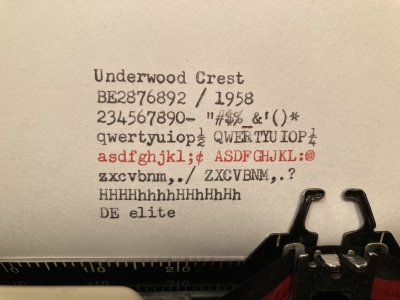 Underwood Crest
BE2876892 / 1958
234567890- "#$%_&'()*
qwertyuiop½ QWERTYUIOP¼
asdfghjkl;¢ ASDFGHJKL:@
zxcvbnm,./ ZXCVBNM,.?
HHHHhhhhHHhHhHh
DE elite